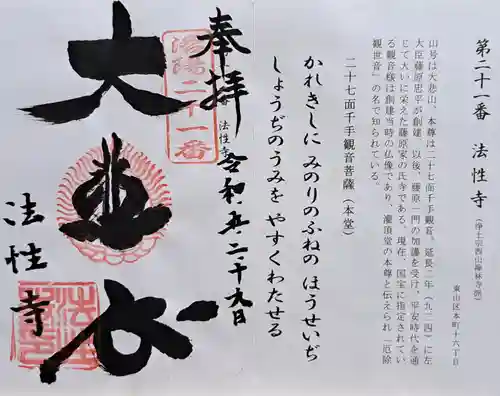 第二十一番 法性寺 (浄土宗西山禅林寺派)
東山区本町十六丁目
山号は大悲山、本尊は二十七面千手観音。延長二年(九二四)に左
大臣藤原忠平が創建、以後、藤原一門の加護を受け、平安時代を通
じて大いに栄えた藤原家の氏寺である。現在、国宝に指定されてい
る観音様は創建当時の仏像であり、灌頂堂の本尊と伝えられ「厄除
観世音」の名で知られている。
二十七面千手観音菩薩(本堂)
かれきしに みのりのふねの ほうせいぢ
しょうぢのうみを やすくわたせる
奉拝
洛陽二十一番
法性寺
令和
二十九日
大悲
法性寺